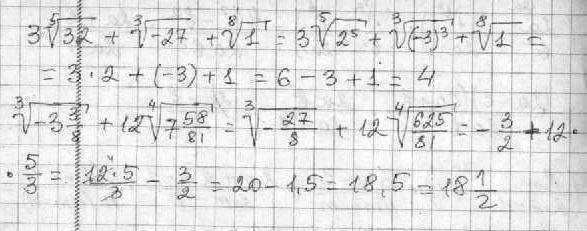 3⁵√32 + ³√-27 + ⁸√1 = 3 ⁵√2⁵ + ³√(-3)³ + ⁸√1 =
= 3·2 + (-3) + 1 = 6 - 3 + 1 = 4
³√-3 3/8 + 12 ⁴√7 58/81 = ³√-27/8 + 12 ⁴√625/81 = -3/2 + 12·
· 5/3 = 12·5/3 - 3/2 = 20 - 1,5 = 18,5 = 18 1/2